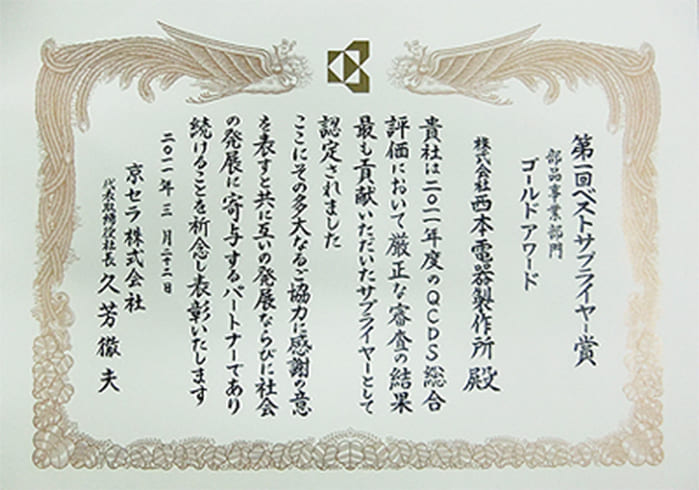 第一回ベストサプライヤー賞
部品事業部門
ゴールドアワード
株式会社 西本電器製作所 殿
貴社は二〇一一年度のQCDS総合
評価において厳正な審査の結果
最も貢献いただいたサプライヤーとして
認定されました
ここにその多大なるご協力に感謝の意
を表すと共に互いの発展ならびに社会
の発展に寄与するパートナーであり
続けることを祈念し表彰いたします
二〇一一年 三月二十二日
京セラ株式会社
代表取締役社長 久芳徹夫